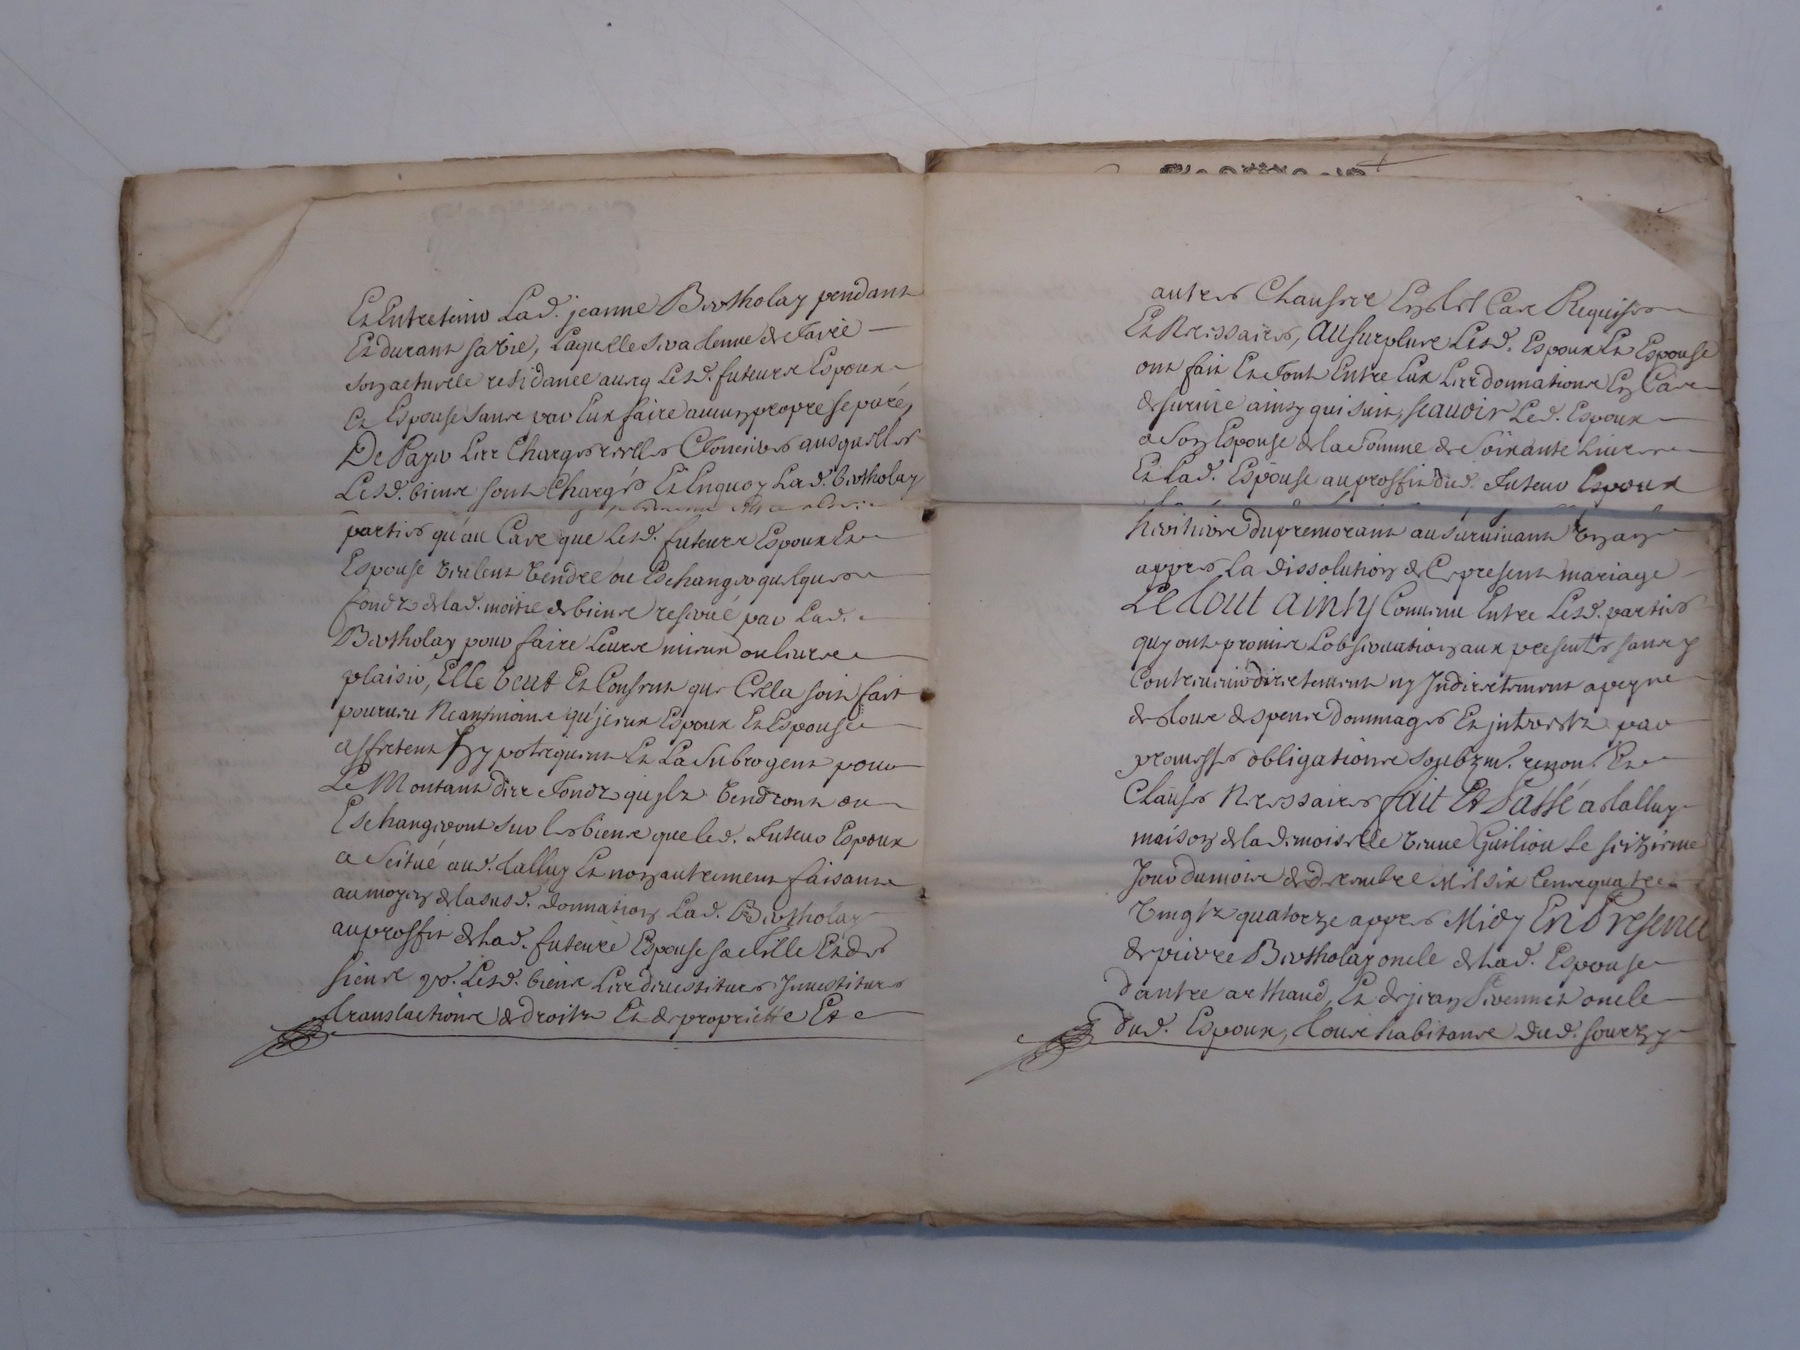 Et Entretenir Lad. jeanne Bertholay pendant
Et durant sa vie, Laquelle sera tenue de faire
son actuelle residance avecq Lesd. futeurs Espoux
Et Espouse sans par Eux faire aucun propre separé,
De Payer Les Charges reelles Foncieres ausquelles
Lesd. biens sont Chargés Et Enquoy Lad. Bertholay
parties qu'au Cas que Lesd. futeurs Espoux Et
Espouse veulent vendre ou Eschanger quelques
fondz de lad. moitié de biens reservé par Lad.
Bertholay pour faire Leurs mieux ou leurs
plaisir, Elle veut Et Consent que Cella soit fait
pourveu Neantmoins qu'jceux Espoux Et Espouse
affectent Hypotequent Et La Subrogent pour
Le Montant des Fondz qu'jlz vendront ou
Eschangeront sur les biens que led. Futeur Espoux
a Scitué aud. Lalluy Et non autrement faisant
au moyen de la susd. donnation Lad. Bertholay
au proffit de Lad. future Espouse sa Fille Et des
siens Lesd. biens Les devestitures Jnvestitures
translations de droitz Et de proprietté Et
autres Clauses En tel Cas Requises
Et Necessaires, au surplus Lesd. Espoux Et Espouse
ont fait Et Font Entre Eux Les donnations En Cas
de survie ainsy qui suit, scavoir Led. Espoux
a Son Espouse de la Somme de Soixante Livres
Et Lad. Espouse au proffit dud. Futeur Espoux
heritiers du premorant au survivant un an
appres La dissolution de Ce present mariage
Le tout ainsy Convenu Entre Lesd. parties
quy ont promis L'observation aux presentes sans y
Contrevenir directement ny Jndirectement a peyne
de tous despens dommages Et jnterestz par
promesses obligations soubzm. renon. Et
Clauses Necessaires fait Et Passé a Lalluy
maison de la demoiselle veuve Guiliou Le seizieme
Jour du mois de decembre Mil six Cens quatre
vingtz quatorze appres Midy En Presence
de pierre Bertholay oncle de Lad. Espouse
d'autre arthaud, Et de jean oncle
dud. Espoux, tous habitans dud.